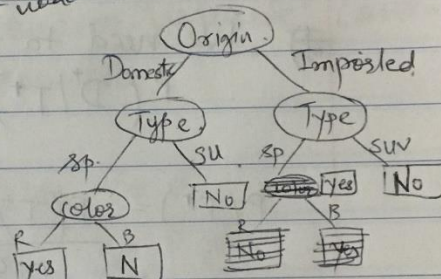 Origin
Domestic Imported
Type Type
Sp. SU SP SUV
Color No Yes No
R B R B
Yes N No Yes